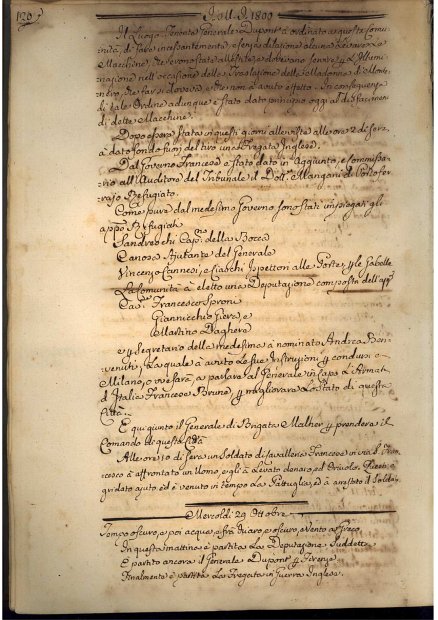 120
1800
Il Luogo Tenente Generale Dupont à ordinato a questa Comu-
nità di fare incessantemente, e senza dilazione alcuna levare le
Macchine, che erano state allestite, e dovevano servire p. l'Illumi-
nazione nell'occasione della Traslazione della Madonna di Monte-
nero, che far si doveva, e che non à avuto effetto. In conseguenza
di tale Ordine adunque è stato dato principio oggi al disfacimento
di dette Macchine.
Dopo essere stata in questi giorni alle viste alle ore 2 di sera
à dato fondo fuori del tiro una Fregata Inglese.
Dal Governo Francese è stato dato in Aggiunto, e Commissa-
rio all'Auditore del Tribunale il Dott. Mangoni da
Refugiato.
Come pure dal medesimo Governo sono stati impiegati gli
app. Refugiati
Sandrocchi Cap. della Bocca
Canosa Ajutante del Generale
Vincenzo Cannesi, e Ispettori alle Porte, p. le Gabelle
La Comunità à eletto una Deputazione composta dell'
Cav. Francesco Sproni
Giannicchio
Martino Daghero
e p. Segretario della medesima à nominato Andrea Ben-
venuti, la quale à avuto le sue Istruzioni p. condursi a
Milano, o ove sarà, a parlare al Generale in Capo l'Armata
d'Italia Francese Brune, p. migliorare lo stato di questa
Città.
È qui giunto il Generale di Brigata Malher p. prendere il
Comando di questa Città
Alle ore 10 di sera un Soldato di Cavalleria Francese in via S. Fran-
cesco à affrontato un Uomo, e gli à levato denaro, ed Oriuolo.
gridato ajuto ed è venuto in tempo la Pattuglia, ed à arrestato il Soldato.
Mercoldì 29 Ottobre
Tempo oscuro, e poi acqua, e fra chiaro, e oscuro, e Vento a Greco.
In questa mattina è partita la Deputazione Suddetta
È partito ancora il Generale Dupont p. Firenze
Finalmente è partita la Fregata in Guerra Inglese.